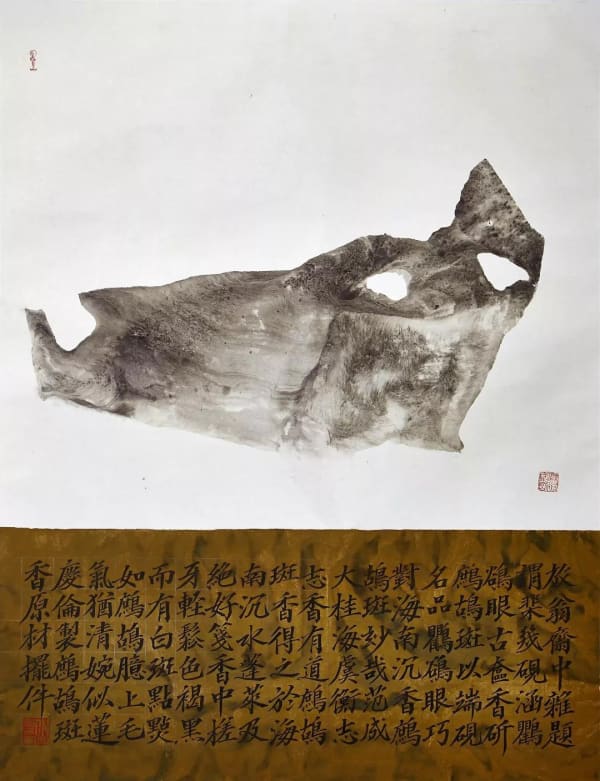 放翁齋中雜題
謂棐幾硯涵鸜
鵒眼古奩香斫
鷓鴣斑以端硯
名品鸜鵒眼巧
對海南沉香鷓
鴣斑玅哉范成
大桂海虞衡志
志香有道鷓鴣
斑香得之於海
南沉水蓬萊及
絕好箋香中槎
牙輕鬆色褐黑
而有白斑點點
如鷓鴣臆上毛
氣猶清婉似蓮
慶倫製鷓鴣斑
香原材擺件